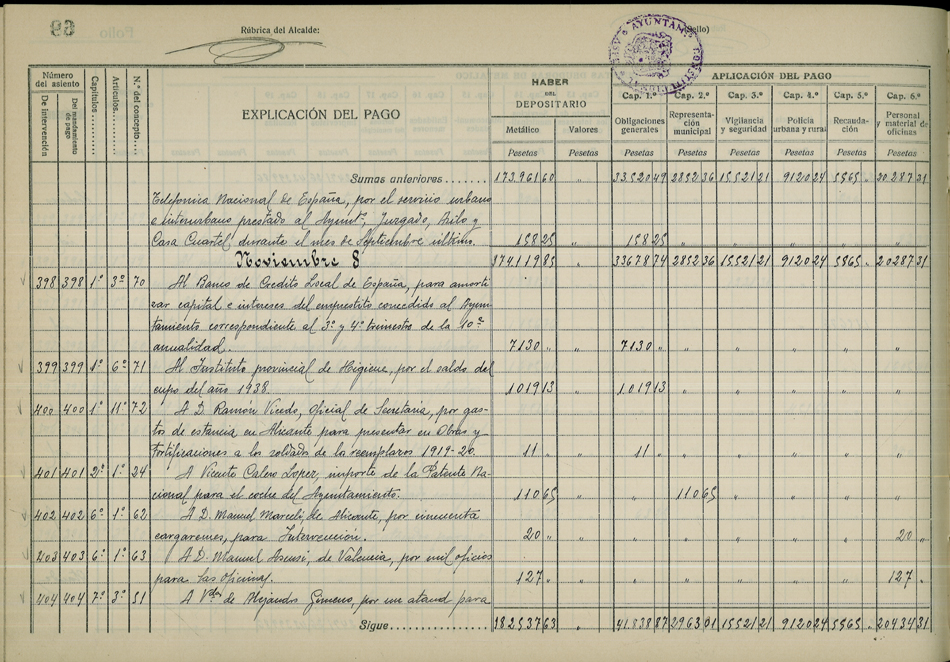 69
Folio
Rúbrica del Alcalde:
(Sello)
AYUNTAM
Número del asiento
De intervención
Del mandamiento de pago
Capítulos
Artículos
N.º del concepto
EXPLICACIÓN DEL PAGO
HABER DEL DEPOSITARIO
Metálico
Pesetas
Valores
Pesetas
APLICACIÓN DEL PAGO
Cap. 1.º Obligaciones generales Pesetas
Cap. 2.º Representación municipal Pesetas
Cap. 3.º Vigilancia y seguridad Pesetas
Cap. 4.º Policía urbana y rural Pesetas
Cap. 5.º Recaudación Pesetas
Cap. 6.º Personal y material de oficinas Pesetas
Sumas anteriores....... 173.961 60 „ 33520 49 2852 36 15521 21 9120 24 5565 „ 20287 31
Telefonica Nacional de España, por el servicio urbano
e interurbano prestado al Ayunt.º, Juzgado, Asilo y
Casa Cuartel, durante el mes de Septiembre último. 158 25 „ 158 25 „ „ „ „ „
Noviembre 8 174119 85 „ 33678 74 2852 36 15521 21 9120 24 5565 „ 20287 31
398 398 1º 3º 70 Al Banco de Credito Local de España, para amorti
zar capital e intereses del empréstito concedido al Ayun-
tamiento correspondiente al 3º y 4º trimestre de la 10ª
anualidad. 7130 „ „ 7130 „ „ „ „ „ „
399 399 1º 6º 71 Al Instituto provincial de Higiene, por el saldo del
cupo del año 1938. 1019 13 „ 1019 13 „ „ „ „ „
400 400 1º 11º 72 A D. Ramón Vicedo, oficial de Secretaria, por gas-
tos de estancia en Alicante para presentar en Obras y
Fortificaciones a los soldados de los reemplazos 1919-20. 11 „ „ 11 „ „ „ „ „ „
401 401 2º 1º 24 A Vicente Calero Lopez, importe de la Patente Na-
cional para el coche del Ayuntamiento. 110 65 „ „ 110 65 „ „ „ „
402 402 6º 1º 62 A D. Manuel Marceli, de Alicante, por cincuenta
cargaremes, para Intervención. 20 „ „ „ „ „ „ „ 20 „
403 403 6º 1º 63 A D. Manuel Asensi, de Valencia, por mil oficios
para las oficinas. 127 „ „ „ „ „ „ „ 127 „
404 404 7º 3º 51 A Vda de Alejandro Gimeno, por un ataud para
Sigue................ 182537 63 „ 41838 87 2963 01 15521 21 9120 24 5565 „ 20434 31